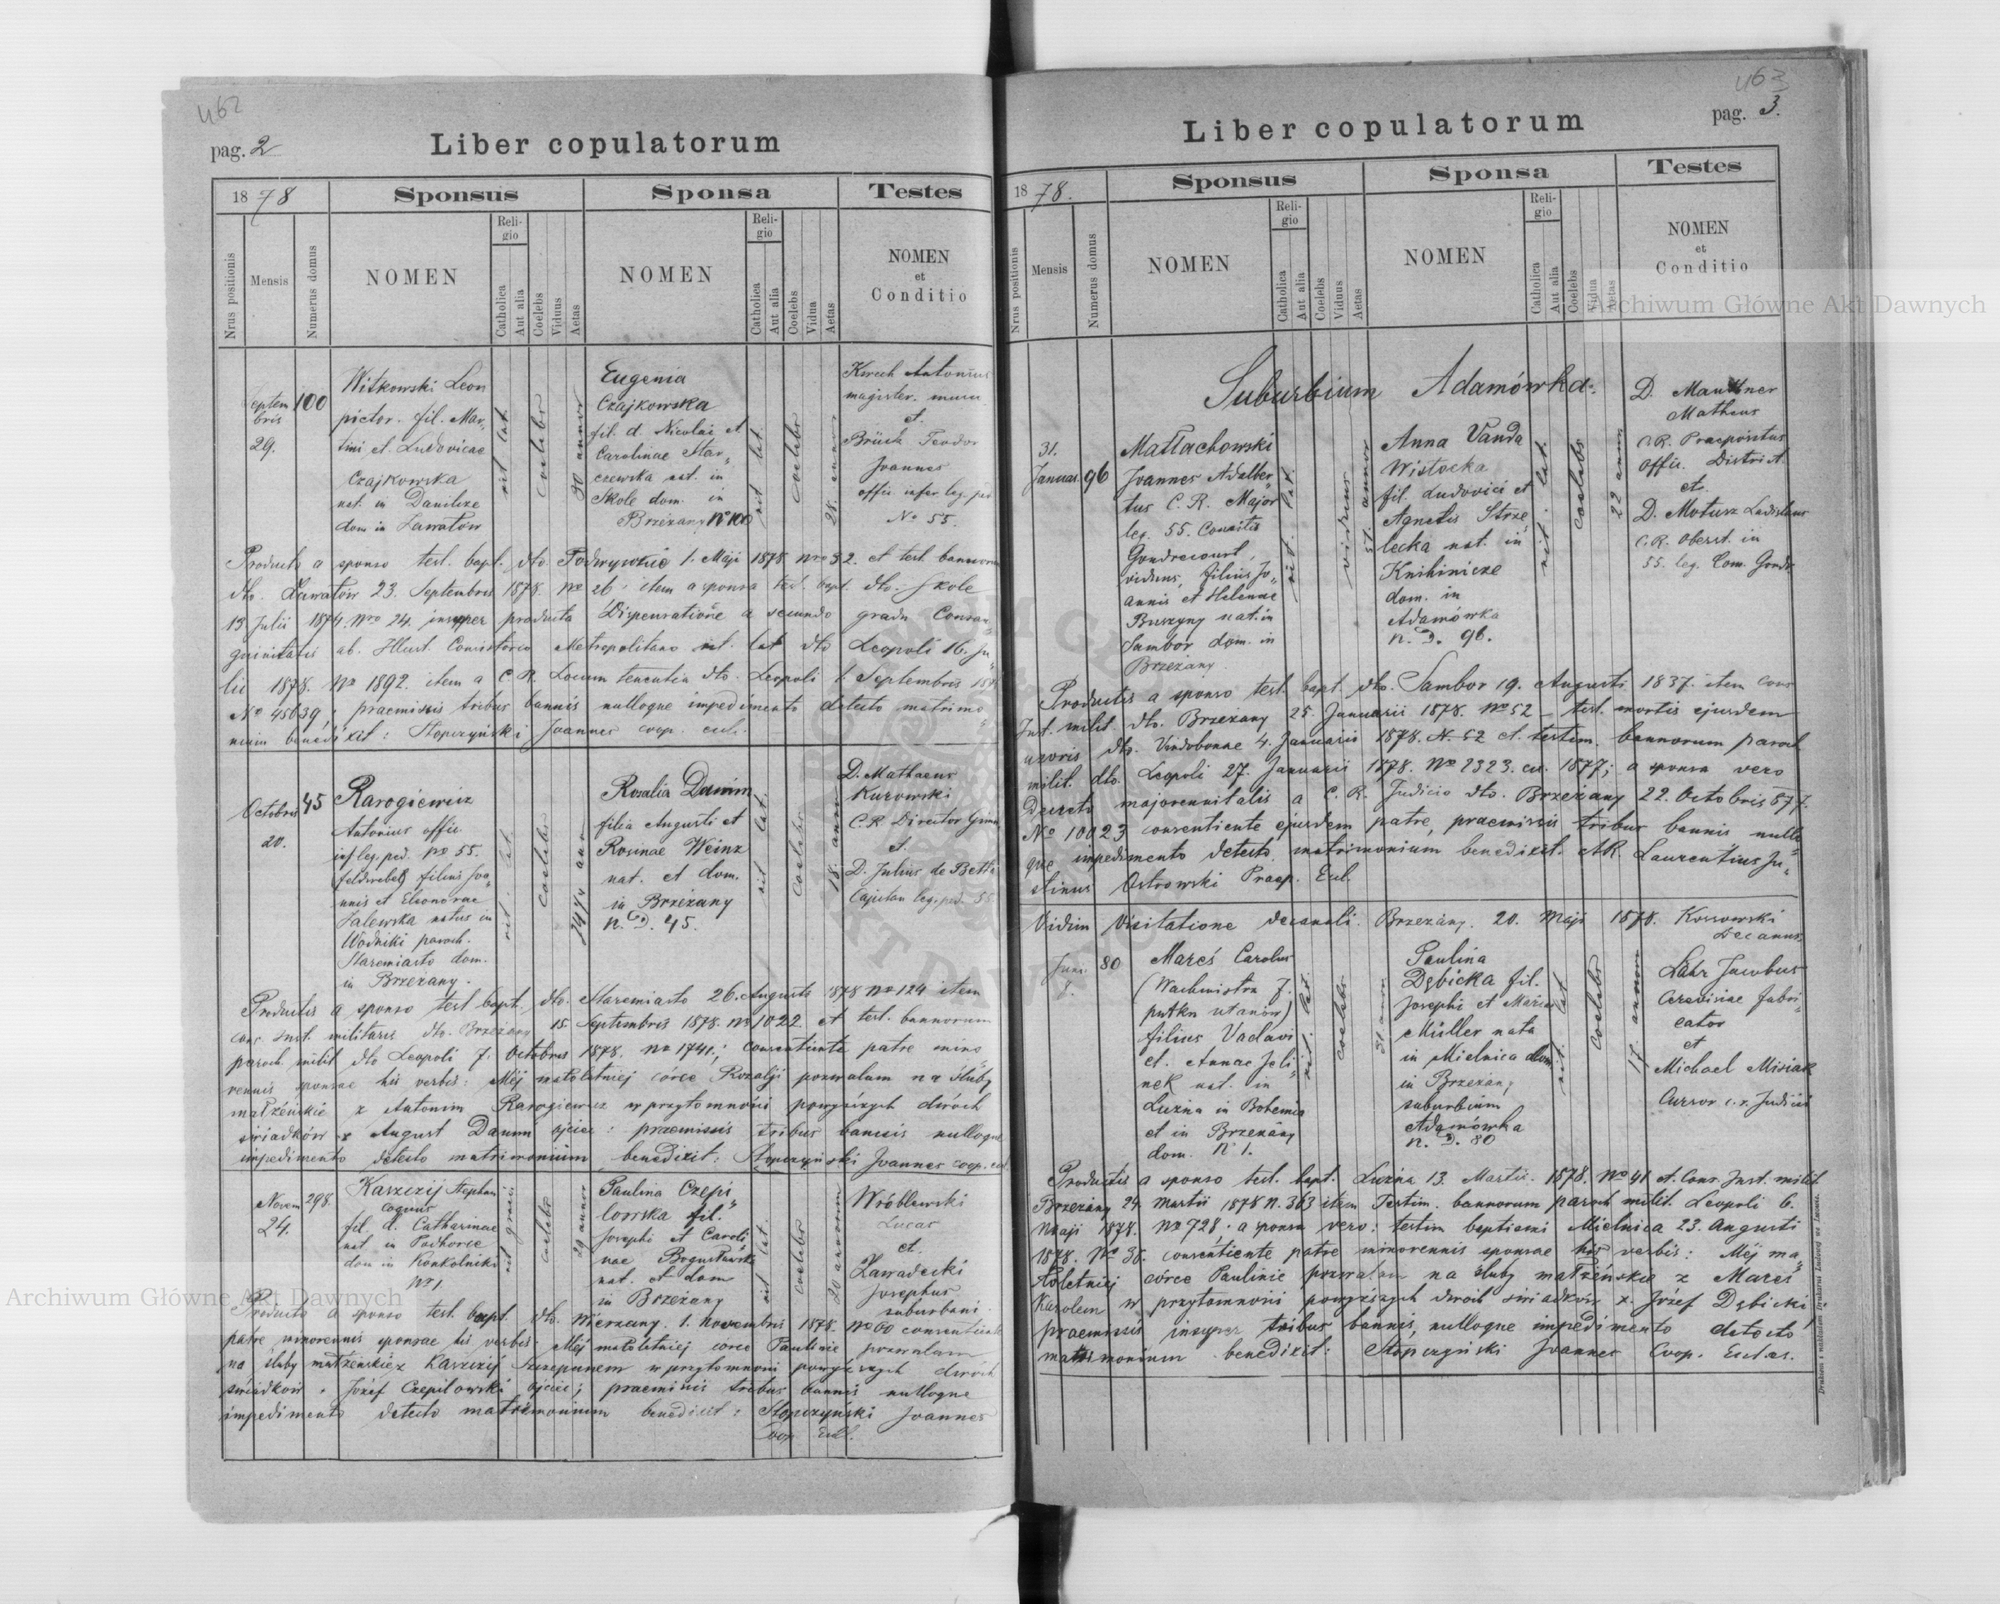 462
pag. 2
Liber copulatorum
1878
Sponsus
Sponsa
Testes
Nrus positionis
Mensis
Numerus domus
NOMEN
Religio
Catholica
Aut alia
Coelebs
Viduus
Aetas
NOMEN
Religio
Catholica
Aut alia
Coelebs
Vidua
Aetas
NOMEN
et
Conditio
Septem
bris
29.
100
Witkowski Leon
pictor. fil. Mar,,
tini et Ludovicae
Czajkowska
nat. in
dom in Ławatów
rit. lat.
coelebs
30 annor
Eugenia
Czajkowska
fil. d. Nicolai et
Carolinae Star,,
czewska nat. in
Skole dom. in
Brzeżany No 100
rit. lat.
coelebs
28. annor
Antonius
magister. mura
et.
Brück Teodor
Joannes
offic. infer. leg. ped
No 55.
Producto a sponso test. bapt. dto. 1. Maji 1878. Nro 32. et test. bannorum
dto. Ławatów 23. Septembris 1878. No 26. item a sponsa test. bapt. dto. Skole
13 Julii 1874. Nro 24. insuper producta Dispensatione a secundo gradu Consan,,
guinitatis ab. Illust. Consistorio Metropolitano rit. lat dto Leopoli 16. Ju,,
lii 1878. No 1892. item a C.R. Locum tenentia dto. Leopoli 1. Septembris
No 45639; praemissis tribus bannis nulloque impedimento detecto matrimo,,
nium benedixit: Stopczyński Joannes coop. eccl.
Octobris
20.
45
Rarogiewicz
Antonius offic.
inf. leg. ped. No 55.
feldwebel filius Joa,,
nnis et Eleonorae
Zalewska natus in
Wodniki paroch.
Staremiasto dom.
in Brzeżany.
rit. lat
coelebs
Rosalia Damm
filia Augusti et
Rosinae Weinz
nat. et dom.
in Brzeżany
N. D. 45.
rit. lat.
coelebs
18. annor
D. Mathaeus
Kurowski
C.R. Director Gymn
et.
D. Julius de Betta
Capitan leg. ped. 55.
Productis a sponso test. bapt. dto. Staremiasto 26. Augusti 1878 No 124 item
cons. inst. militaris dto. Brzeżany 15. Septembris 1878. No 1022 et test. bannorum
paroch. milit dto Leopoli 7. Octobris 1878. No 1741.; consentiente patre mino,,
rennis sponsae his verbis: Mej małoletniej córce Rozalji pozwalam na śluby
małżeńskie z Antonim Rarogiewicz w przytomności powyższych dwóch
świadków x August Damm ojciec: praemissis tribus bannis nulloque
impedimento detecto matrimonium benedixit: Stopczyński Joannes coop. eccl.
Novem
24.
298.
Kaszczij Stephan
coquus
fil. d. Catharinae
nat. in Podhorce
dom in Konkolniki
No 1.
rit graec
coelebs
29 annor
Paulina Czepi,,
lowska fil.
Josephi et Caroli,,
nae Bogusławska
nat. et dom
in Brzeżany
rit lat.
coelebs
20 annorum
Wróblewski
Lucas
et.
Zawadecki
Josephus
suburbani.
Producto a sponso test. bapt. dto. Wierzany. 1. novembris 1878. No 60 consentiente
patre minorennis sponsae his verbis. Mej małoletniej córce Paulinie pozwalam
na śluby małżeńskie z Kaszczij Szczepanem w przytomności powyższych dwóch
świadków. Józef Czepilowski ojciec; praemissis tribus bannis nulloque
impedimento detecto matrimonium benedixit: Stopczyński Joannes
coop. eccl.
463
pag. 3.
Liber copulatorum
1878.
Sponsus
Sponsa
Testes
Nrus positionis
Mensis
Numerus domus
NOMEN
Religio
Catholica
Aut alia
Coelebs
Viduus
Aetas
NOMEN
Religio
Catholica
Aut alia
Coelebs
Vidua
Aetas
NOMEN
et
Conditio
Suburbium Adamówka.
31.
Januar.
96
Małachowski
Joannes Adalber,,
tus C. R. Major
leg. 55. Comitis
Gondrecourt,
viduus, filius Jo,,
annis et Helenae
Buszyny nat. in
Sambor dom. in
Brzeżany.
rit. lat.
viduus
51. annor
Anna Vanda
Wisłocka
fil. Ludovici et
Agnetis Strze,,
lecka nat. in
Knihinicze
dom. in
Adamówka
N. D. 96.
rit. lat.
coelebs
22 annor
D. Mauthner
Matheus
C.R. Praepositus
Offic. District.
et.
D. Motusz Ladislaus
C.R. Oberst. in
55. leg. Com. Gondr.
Productis a sponso test. bapt. dto. Sambor 19. Augusti 1837. item cons
Inst. milit. dto. Brzeżany 25. Januarii 1878. No 52 test. mortis ejusdem
uxoris dto. Vindobonae 4. Januarii 1878. N. 52 et testim. bannorum paroch
milit. dto. Leopoli 27. Januarii 1878. No 2323. ex. 1877; a sponsa vero
Decreto majorennitatis a C. R. Judicio dto. Brzeżany 22. Octobris 877.
No 10023 consentiente ejusdem patre, praemissis tribus bannis nullo,,
que impedimento detecto matrimonium benedixit. AR. Laurentius Ju,,
stinus Ostrowski Praep. Eccl.
Vidim Visitatione decanali. Brzeżany. 20. Maji 1878. Kossowski
Decanus
Juni.
80
Mareš Carolus
(Wachmistrz 7.
pułku ułanów)
filius Vaclavi
et. Annae Jeli,,
nek nat. in
Lužna in Bohemia
et in Brzeżany
dom. N 1.
rit. lat.
coelebs
31 annor
Paulina
Dębicka fil.
Josephi et Maria
Müller nata
in Mielnica dom.
in Brzeżany
suburbium
Adamówka
N. D. 80
rit. lat
coelebs
17. annor
Jacobus
Cerevisiae fabri,,
cator
et
Michael Misiak
Cursor c. r. Judicii
Productis a sponso test. bapt. Lužna 13. Martii. 1878. No 41 et. Cons. Inst. milit
Brzeżany 24. Martii 1878 N. 363 item Testim. bannorum paroch milit. Leopoli 6.
Maji 1878. No 728. a sponsa vero: testim baptismi Mielnica 23. Augusti
1878. No 36. consentiente patre minorennis sponsae his verbis: Mej ma,,
łoletniej córce Paulinie pozwalam na śluby małżeńskie z Mareš
Karolem w przytomności powyższych dwóch świadków x. Józef Dębicki;
praemissis insuper tribus bannis, nulloque impedimento detecto
matrimonium benedixit: Stopczyński Joannes Coop. Eccl.
Drukiem i nakładem Drukarni Ludowej we Lwowie.
Archiwum Główne Akt Dawnych
Archiwum Główne Akt Dawnych